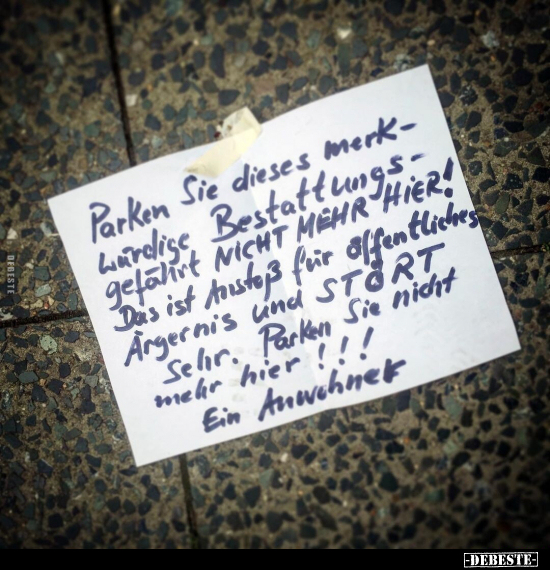 Parken Sie dieses merk-
würdige Bestattungs-
gefährt NICHT MEHR HIER!
Das ist Anstoß für öffentliches
Ärgernis und STÖRT
sehr. Parken Sie nicht
mehr hier !!!
Ein Anwohner
DEBESTE
-DEBESTE-